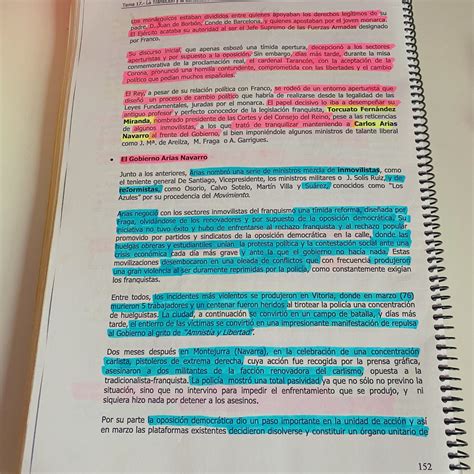 Tema 17.- La Transición y la
Los monárquicos estaban divididos entre quienes apoyaban los derechos legítimos de su
padre, D. Juan de Borbón, Conde de Barcelona, y quienes apostaban por el joven monarca.
El Ejército acataba su autoridad al ser el Jefe Supremo de las Fuerzas Armadas designado
por Franco.
Su discurso inicial, que apenas esbozó una tímida apertura, decepcionó a los sectores
aperturistas y por supuesto a la oposición. Sin embargo, días más tarde, durante la misa
conmemorativa de la proclamación real, el cardenal Tarancón, con la aceptación de la
Corona, pronunció una homilía contundente, comprometida con las libertades y el cambio
político que pedían muchos españoles.
El Rey, a pesar de su relación política con Franco, se rodeó de un entorno aperturista que
diseñó un proceso de cambio político que habría de realizarse desde la legalidad de las
Leyes Fundamentales, juradas por el monarca. El papel decisivo lo iba a desempeñar su
antiguo profesor y perfecto conocedor de la legislación franquista, Torcuato Fernández
Miranda, nombrado presidente de las Cortes y del Consejo del Reino, pese a las reticencias
de algunos inmovilistas, a los que trató de tranquilizar manteniendo a Carlos Arias
Navarro al frente del Gobierno, si bien imponiéndole algunos ministros de talante liberal
como J. Mª. de Areilza, M. Fraga o A. Garrigues.
• El Gobierno Arias Navarro
Junto a los anteriores, Arias nombró una serie de ministros mezcla de inmovilistas, como
el teniente General de Santiago, Vicepresidente, los ministros militares o J. Solís Ruiz, y de
reformistas, como Osorio, Calvo Sotelo, Martín Villa y Suárez, conocidos como "Los
Azules" por su procedencia del Movimiento.
Arias negoció con los sectores inmovilistas del franquismo una tímida reforma, diseñada por
Fraga, olvidándose de los renovadores y por supuesto de la oposición democrática. Su
iniciativa no tuvo éxito y hubo de enfrentarse al rechazo franquista y al rechazo popular
promovido por partidos y sindicatos de la oposición democrática en la calle, donde las
huelgas obreras y estudiantiles unían la protesta política y la contestación social ante una
crisis económica cada día más grave y ante la que el gobierno no hacía nada. Estas
movilizaciones desembocaron en una oleada de conflictos que con frecuencia produjeron
una gran violencia al ser duramente reprimidas por la policía, como constantemente exigían
los franquistas.
Entre todos, los incidentes más violentos se produjeron en Vitoria, donde en marzo (76)
murieron 5 trabajadores y un centenar fueron heridos al tirotear la policía una concentración
de huelguistas. La ciudad, a continuación se convirtió en un campo de batalla, y días más
tarde, el entierro de las víctimas se convirtió en una impresionante manifestación de repulsa
al Gobierno al grito de "Amnistía y Libertad".
Dos meses después en Montejurra (Navarra), en la celebración de una concentración
carlista, pistoleros de extrema derecha, cuya acción fue recogida por la prensa gráfica,
asesinaron a dos militantes de la facción renovadora del carlismo, opuesta a la
tradicionalista-franquista. La policía mostró una total pasividad ya que no sólo no previno la
situación, sino que no intervino para impedir el enfrentamiento que se produjo, y ni
siquiera hizo nada por detener a los asesinos.
Por su parte la oposición democrática dio un paso importante en la unidad de acción y así
en marzo las plataformas existentes decidieron disolverse y constituir un órgano unitario de
152